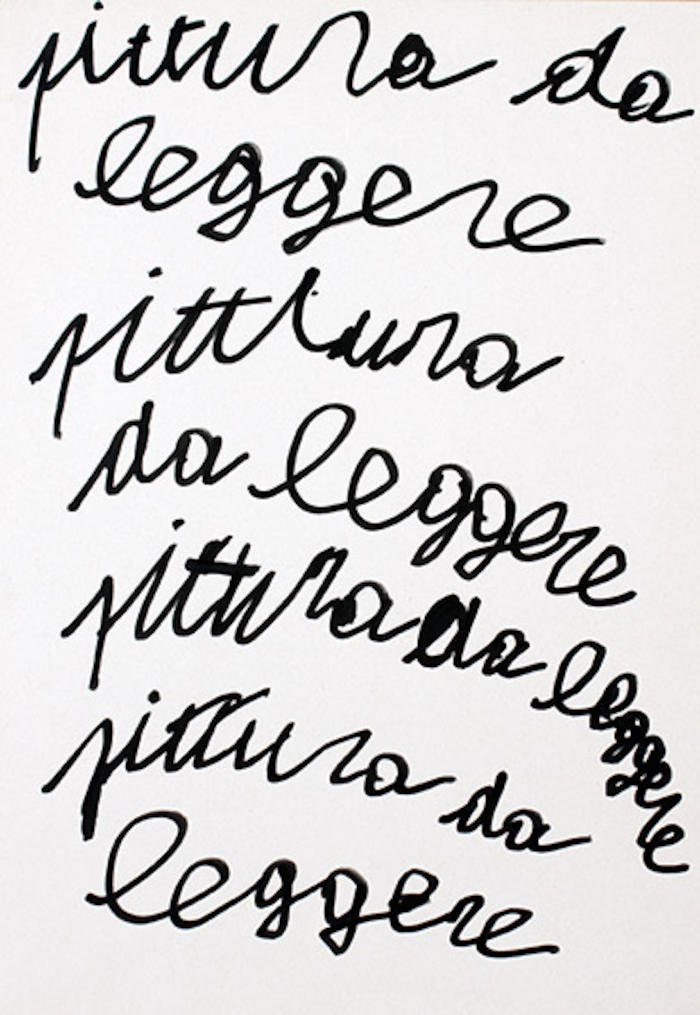 pittura da
leggere
pittura
da leggere
pittura da leggere
pittura da
leggere